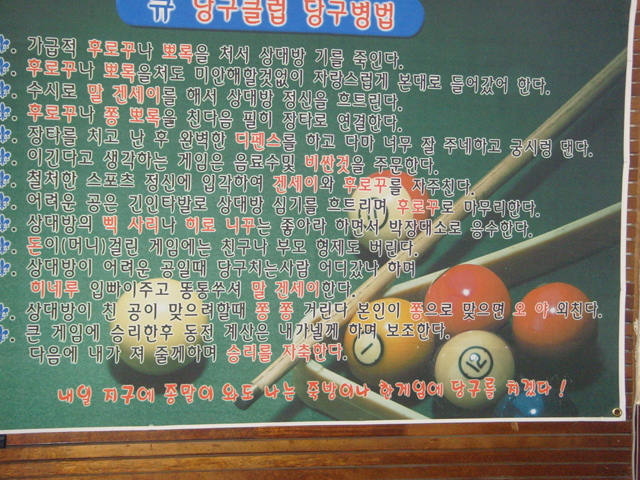 큐 당구클럽 당구병법
가급적 후로꾸나 뽀록을 쳐서 상대방 기를 죽인다.
후로꾸나 뽀록을쳐도 미안해할것없이 자랑스럽게 본대로 들어갔어 한다.
수시로 말 겐세이를 해서 상대방 정신을 흐트린다.
후로꾸나 쫑 뽀록을 친다음 필히 장타로 연결한다.
장타를 치고 난 후 완벽한 디펜스를 하고 다마 너무 잘 주네하고 궁시렁 댄다.
이긴다고 생각하는 게임은 음료수및 비싼것을 주문한다.
철저한 스포츠 정신에 입각하여 겐세이와 후로꾸를 자주친다.
어려운 공은 긴인타발로 상대방 심기를 흐트리며 후로꾸로 마무리한다.
상대방의 삑 사리나 히로 니꾸는 좋아라 하면서 박장대소로 응수한다.
돈이(머니)걸린 게임에는 친구나 부모 형제도 버린다.
상대방이 어려운 공일때 당구치는사람 어디갔나 하며
히네루 입빠이주고 똥통쑤셔 말 겐세이한다.
상대방이 친 공이 맞으려할때 쫑 쫑 거린다 본인이 쫑으로 맞으면 오 야 외친다.
큰 게임에 승리한후 동전 계산은 내가낼께 하며 보조한다.
다음에 내가 져 줄께하며 승리를 자축한다.
내일 지구에 종말이 와도 나는 죽빵이나 한게임에 당구를 치겠다 !
1
12